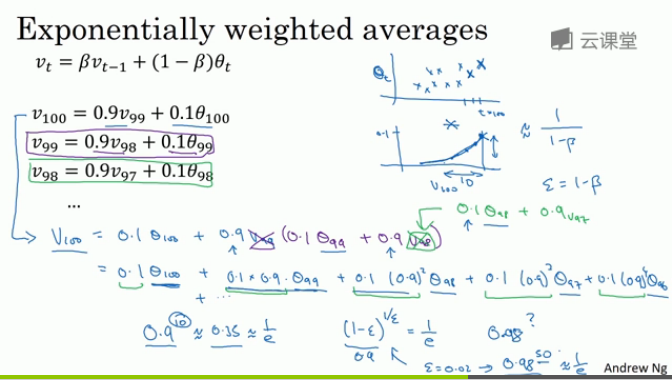 Exponentially weighted averages
云课堂
v_t = βv_{t−1} + (1 − β)θ_t
θ_t
t=100
v_100 = 0.9v_99 + 0.1θ_100
v_99 = 0.9v_98 + 0.1θ_99
v_98 = 0.9v_97 + 0.1θ_98
...
0.1
V_100
10
≈ 1/(1-β)
ε = 1-β
0.1 θ_98 + 0.9 v_97
V_100 = 0.1 θ_100 + 0.9 v_99 (0.1 θ_99 + 0.9 v_98)
= 0.1 θ_100 + 0.1 × 0.9 · θ_99 + 0.1 (0.9)^2 θ_98 + 0.1 (0.9)^3 θ_97 + 0.1 (0.9)^4 θ_96
+ ...
0.9^10 ≈ 0.35 ≈ 1/e
(1-ε)^{1/ε} = 1/e
0.9
0.98 ?
ε = 0.02 → 0.98^50 ≈ 1/e
Andrew Ng